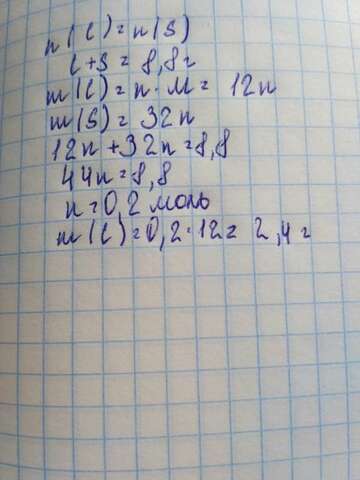 n(C)=n(S)
C+S=8,8г
m(C)=n·M=12n
m(S)=32n
12n+32n=8,8
44n=8,8
n=0,2 моль
m(C)=0,2·12=2,4г